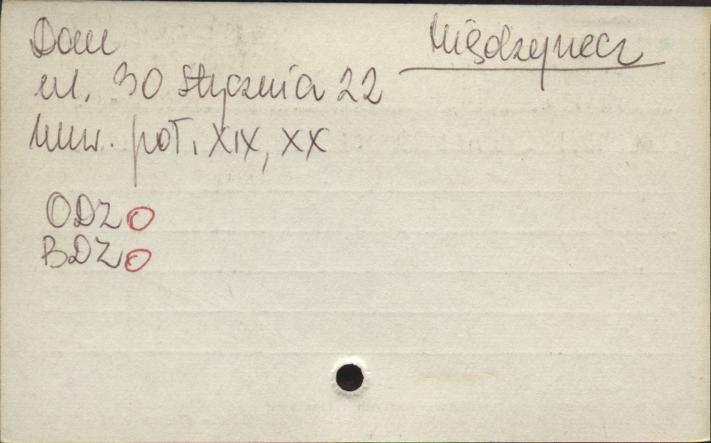 Dom
Międzyrzecz
ul. 30 Stycznia 22
mur. poł. XIX, XX
ODZ O
BDZ O